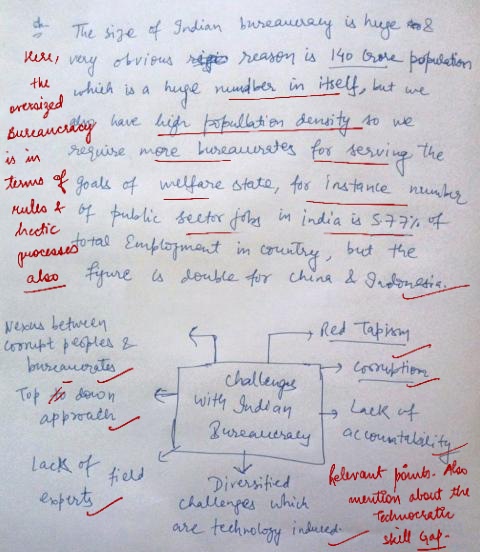 The size of Indian bureaucracy is huge &
very obvious reason is 140 crore population
which is a huge number in itself, but we
also have high popullation density so we
require more bureaucrates for serving the
goals of welfare state, for instance number
of public sector jobs in india is 5.77% of
total Employment in country, but the
figure is double for china & Indonesia.
Here,
the
oversized
Bureaucracy
is in
terms of
rules &
hectic
processes
also
Nexus between
corrupt peoples &
bureaucrates
Top down
approach
Lack of field
experts
Challenges
with Indian
Bureaucracy
Red Tapism
Corruption
Lack of
accountability
Diversified
challenges which
are technology induced.
Relevant points. Also
mention about the
Technocratic
skill Gap.